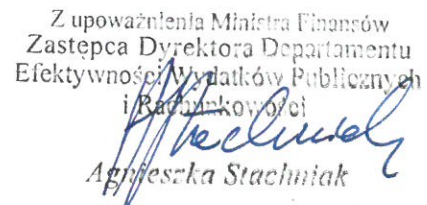 Z upoważnienia Ministra Finansów
Zastępca Dyrektora Departamentu
Efektywności Wydatków Publicznych
i Rachunkowości
Stachniak
Agnieszka Stachniak